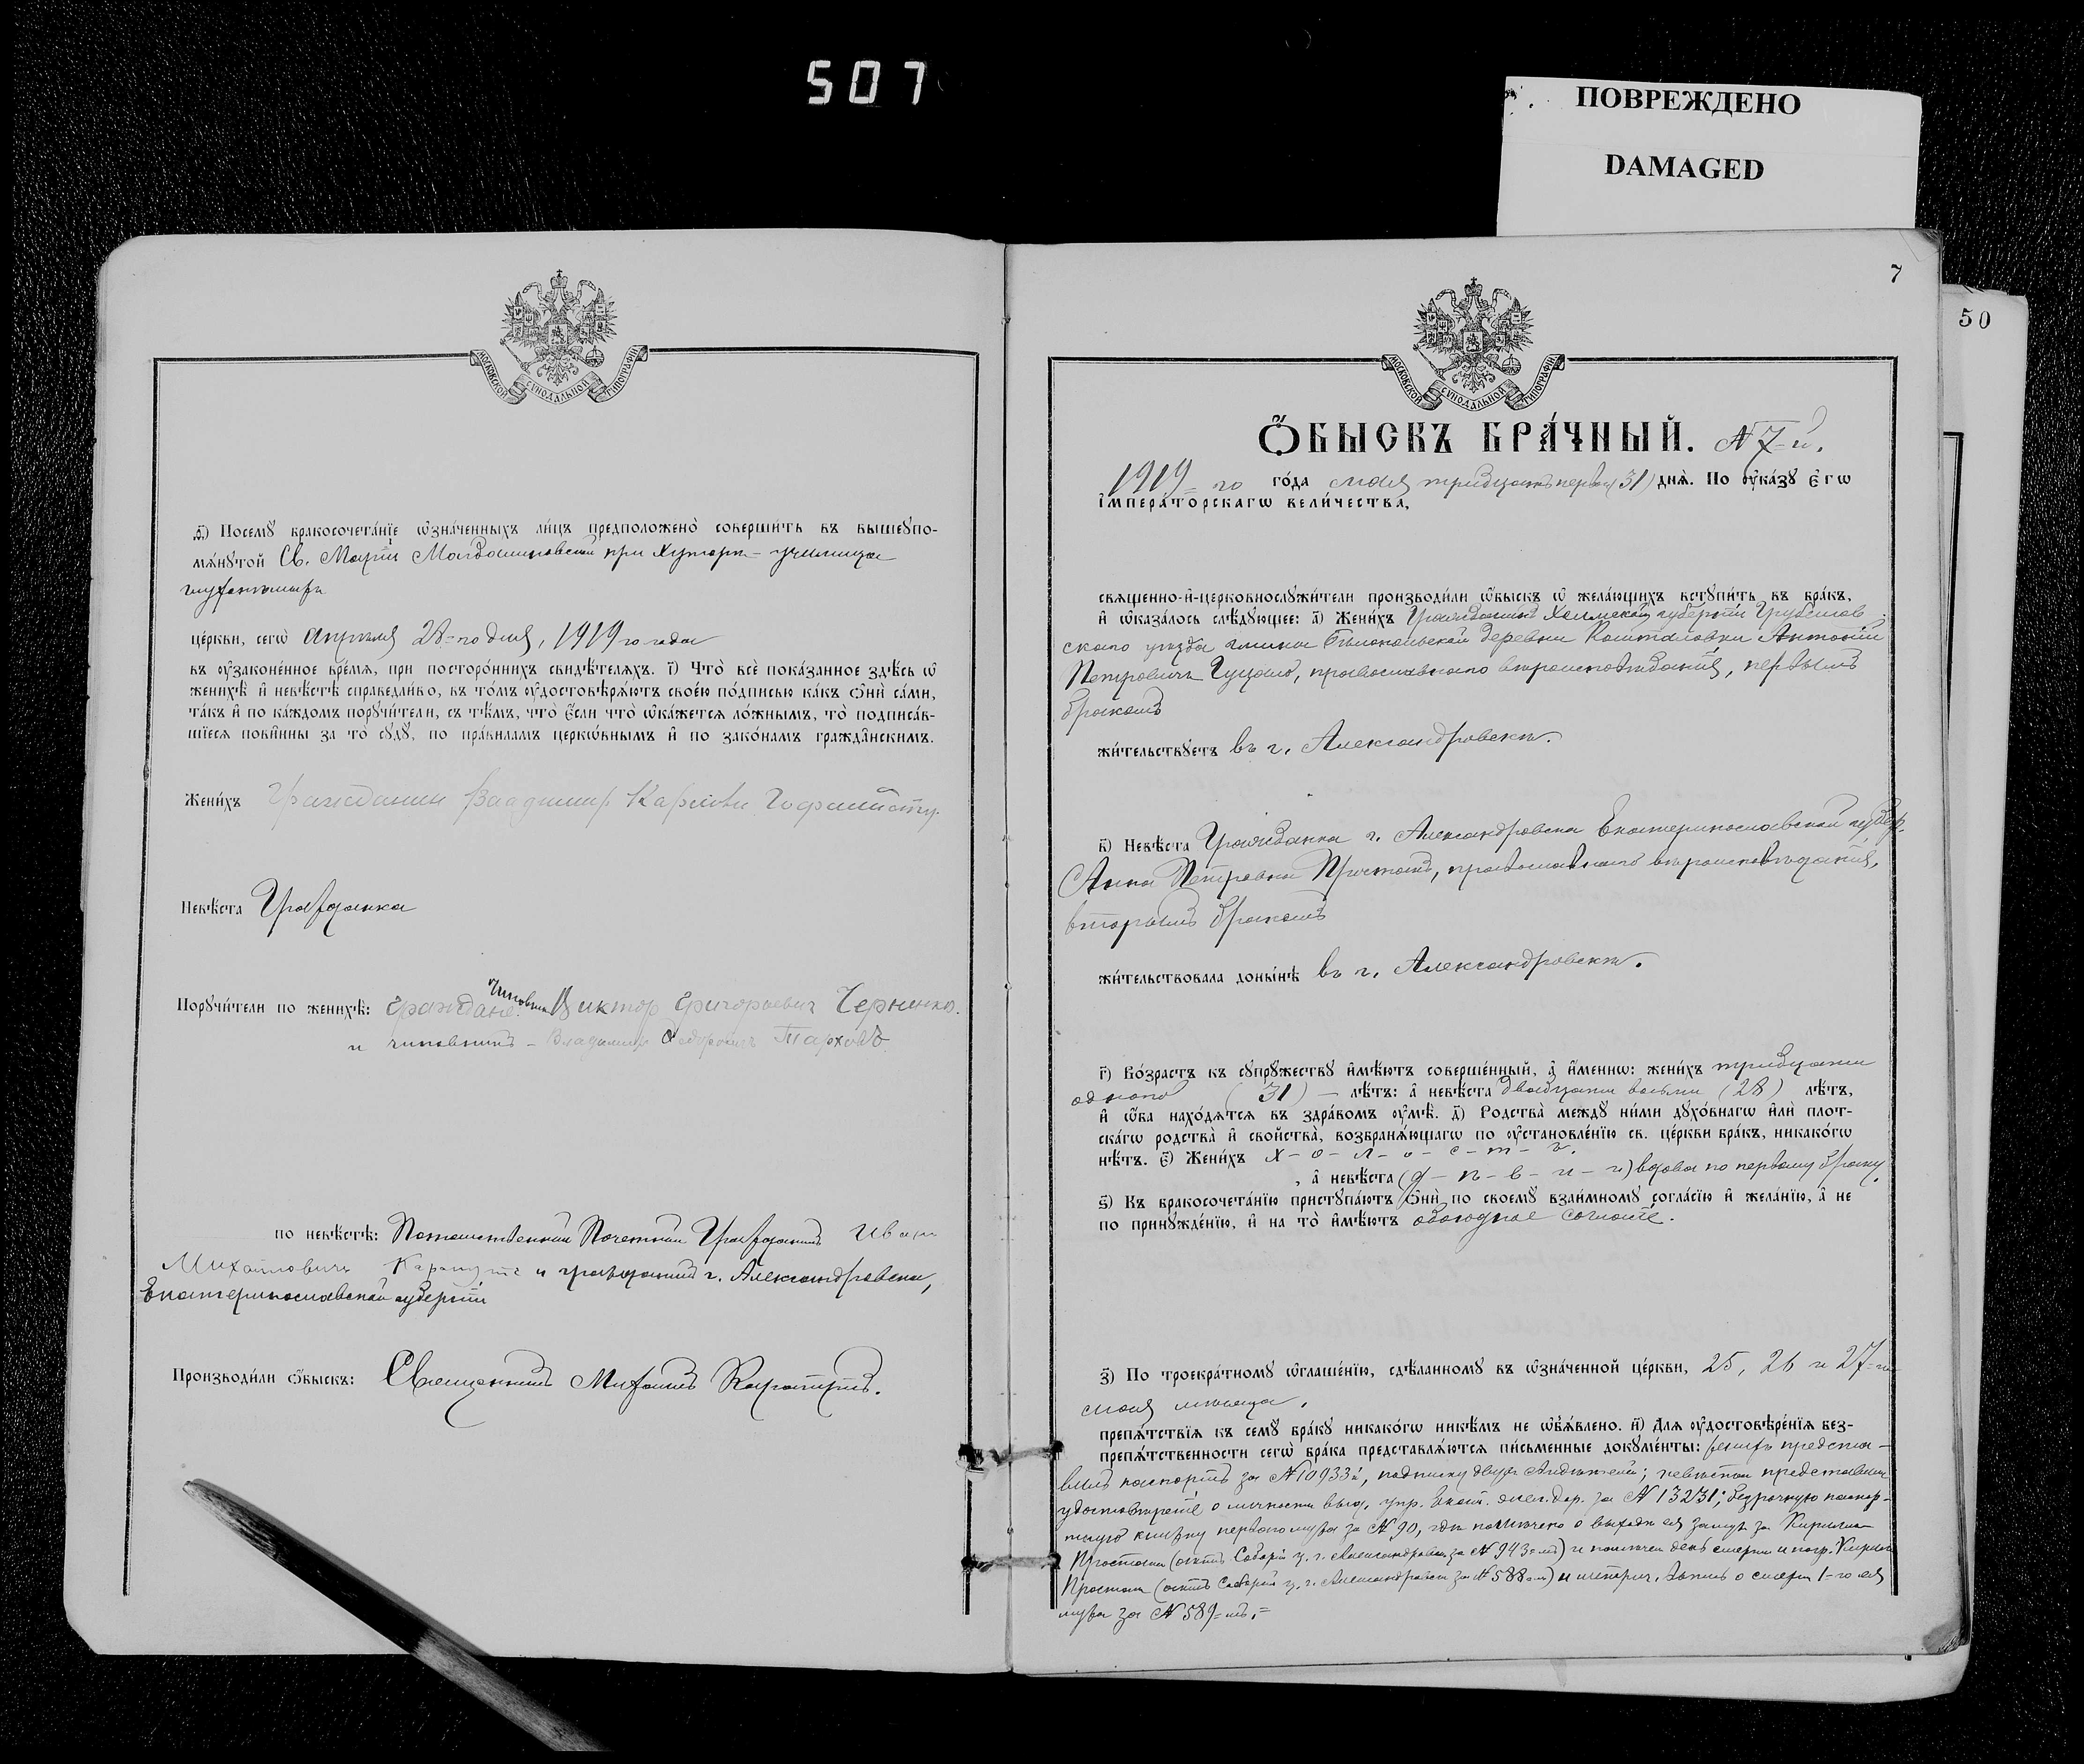 507
ПОВРЕЖДЕНО
DAMAGED
МОСКОВСКОЙ СѴНОДАЛЬНОЙ ТИПОГРАФІИ
ѳ҃) Посемꙋ бракосочета́нїе ѡ҆зна́ченныхъ ли́цъ предположено̀ соверши́ть въ вышеꙋпо-
мѧ́нꙋтой Св. Маріи Магдалиновской при хуторѣ - училища
церкви, сегѡ̀ Апрѣля 28=го дня, 1919 го года
въ ᲂу҆зако́ненное вре́мѧ, при посторо́ннихъ свидѣ́телѧхъ. і҃) Что̀ всѐ пока́занное здѣ́сь ѡ҆
женихѣ̀ и҆ невѣ́стѣ справедли́во, въ то́мъ ᲂу҆достовѣрѧ́ютъ свое́ю по́дписью ка́къ ѻ҆нѝ са́ми,
та́къ и҆ по ка́ждомъ порꙋчи́тели, съ тѣ́мъ, что̀ є҆́сли что̀ ѡ҆ка́жетсѧ ло́жнымъ, то̀ подписа́в-
шїесѧ пови́нны за то̀ сꙋдꙋ̀, по пра́виламъ церкѡ́внымъ и҆ по зако́намъ гражда́нскимъ.
Жени́хъ Гражданин Владимир Карлови
Невѣ́ста Гражданка
Порꙋчи́тели по женихѣ̀: Граждане: чиновник Виктор Григорьевич Черненко.
и чиновникъ - Владимир Федорович Тарховъ
по невѣ́стѣ: Потомственный Почетный Гражданинъ Иван
Михайловичъ и гражданин г. Александровска,
Екатеринославской губерніи
Производи́ли ѻ҆́быскъ: Священникъ Михаилъ
7
50
МОСКОВСКОЙ СѴНОДАЛЬНОЙ ТИПОГРАФІИ
Ѻ҆́БЫСКЪ БРА́ЧНЫЙ. № 7=й.
1919=го го́да мая тридцать перваго (31) днѧ̀. По ᲂу҆ка́зꙋ є҆гѡ̀
і҆мпера́торскагѡ вели́чества,
свѧщенно-и҆-церковнослꙋжи́тели производи́ли ѡ҆́быскъ ѡ҆ жела́ющихъ встꙋпи́ть въ бра́къ,
и҆ ѡ҆каза́лось слѣ́дꙋющее: а҃) Жени́хъ Гражданинъ Холмской губерніи Грубешов
скаго уѣзда гмины Бѣлопольской деревни Антоній
Петровичъ Гуцало, православнаго вѣроисповѣданія, первымъ
бракомъ
жи́тельствꙋетъ въ г. Александровскѣ.
в҃) Невѣ́ста Гражданка г. Александровска Екатеринославской губер.
Анна Петровна Простакъ, православнаго вѣроисповѣданія,
вторымъ бракомъ
жи́тельствовала доны́нѣ въ г. Александровскѣ.
г҃) Во́зрастъ къ сꙋпрꙋ́жествꙋ и҆мѣ́ютъ соверше́нный, а҆ и҆́меннѡ: жени́хъ тридцати
одного (31) — лѣ́тъ: а҆ невѣ́ста двадцати восьми (28) лѣ́тъ,
и҆ ѡ҆́ба нахо́дѧтсѧ въ здра́вомъ ᲂу҆мѣ̀. д҃) Родства̀ междꙋ ни́ми дꙋхо́внагѡ и҆лѝ плот-
ска́гѡ родства̀ и҆ свойства̀, возбранѧ́ющагѡ по ᲂу҆становле́нїю св. це́ркви бра́къ, никако́гѡ
нѣ́тъ. є҃) Жени́хъ х - о - л - о - с - т - ъ.
, а҆ невѣ́ста (д - ѣ - в - и - ц) вдова по первому браку.
ѕ҃) Къ бракосочета́нїю пристꙋпа́ютъ ѻ҆нѝ по своемꙋ̀ взаи́мномꙋ согла́сїю и҆ жела́нїю, а҆ не
по принꙋжде́нїю, и҆ на то̀ и҆мѣ́ютъ обоюдное согласіе.
з҃) По троекра́тномꙋ ѡ҆глаше́нїю, сдѣ́ланномꙋ въ ѡ҆зна́ченной це́ркви, 25, 26 и 27=го
мая мѣсяца.
препѧ́тствїѧ къ семꙋ̀ бра́кꙋ никако́гѡ никѣ́мъ не ѡ҆б̾ѧ́влено. и҃) Для ᲂу҆достовѣре́нїѧ без-
препѧ́тственности сегѡ̀ бра́ка представлѧ́ютсѧ пи́сьменные докꙋме́нты: женихъ предста-
вилъ паспортъ за № 10933й, подписку двухъ свидѣтелей; невѣста представила
удостовѣреніе о личности выд. упр. Екат. жел. дор. за № 13231; безсрочную паспор-
тную книжку перваго мужа за № 90, гдѣ помѣчено о выходѣ ея замужъ за Кирилла
Простака (актъ Соборн. ц. г. Александровска за № 943=мъ) и помѣчен день смерти и погр. Кирилла
Простака (актъ Соборн. ц. г. Александровска за № 588=мъ) и метрич. выпись о смерти 1-го ея
мужа за № 589=мъ.=